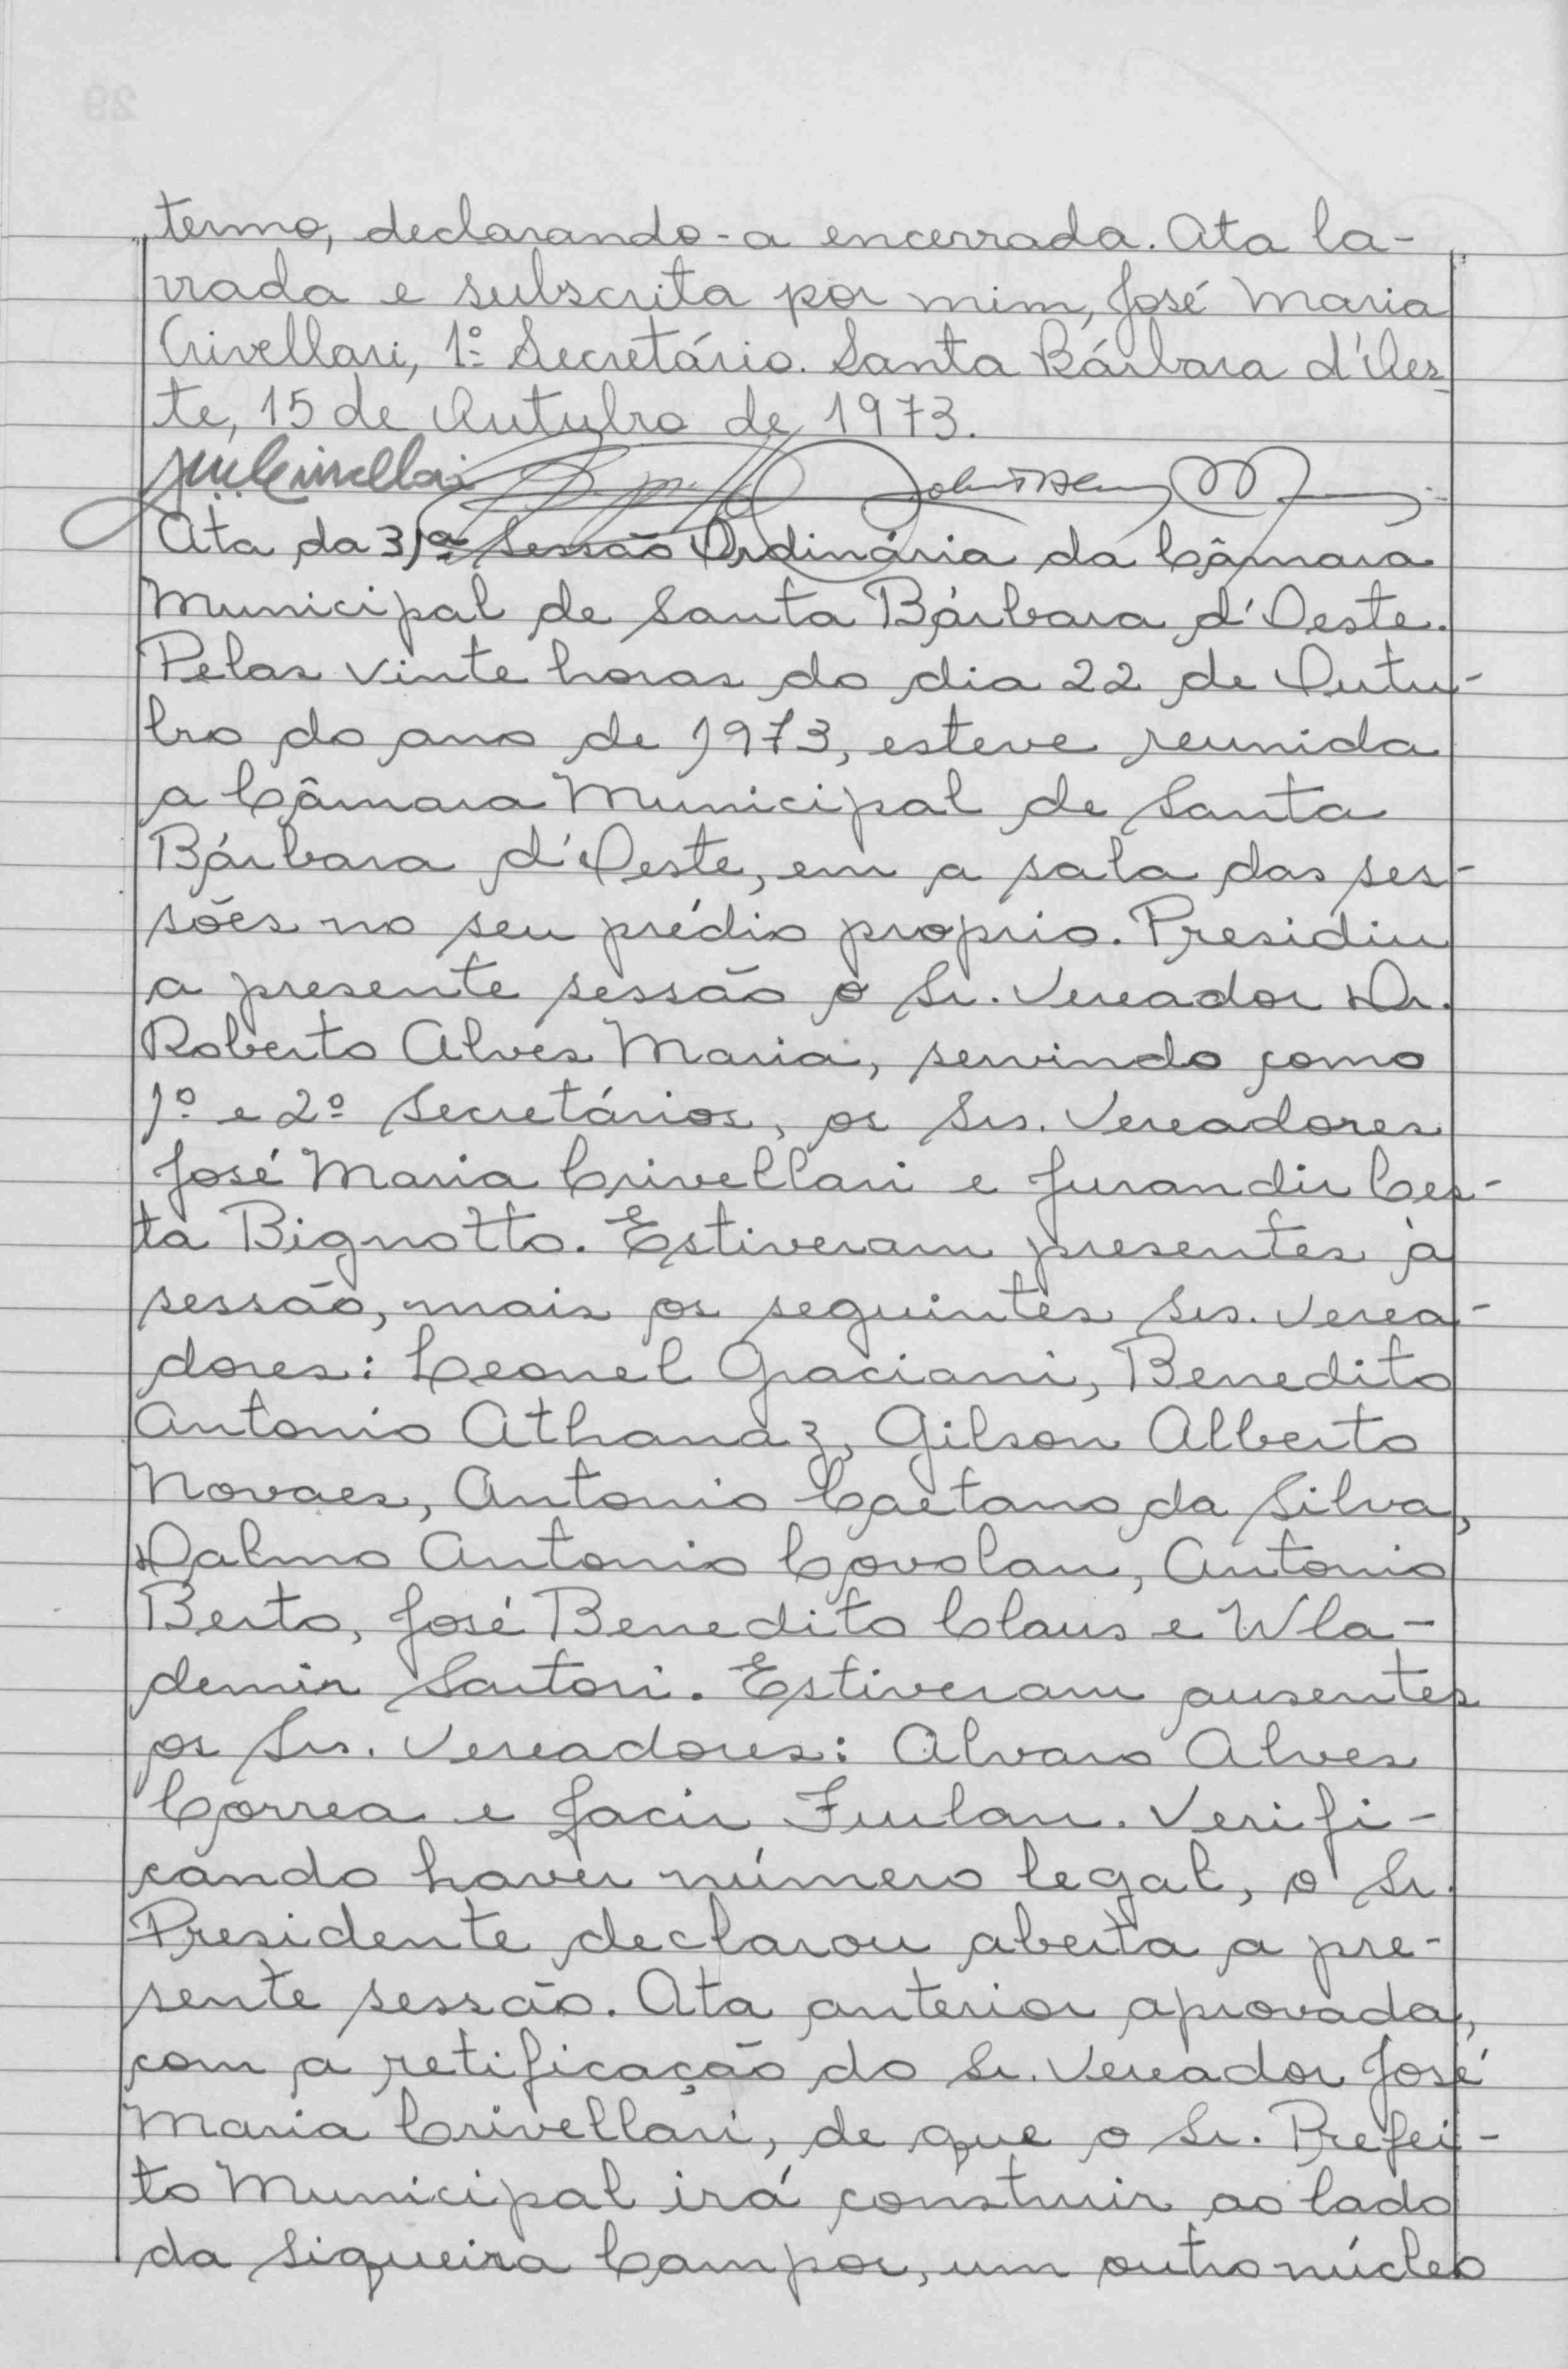 termo, declarando-a encerrada. Ata la-
vrada e subscrita por mim, José Maria
Crivellari, 1º Secretário. Santa Bárbara d'Oes-
te, 15 de Outubro de 1973.
Ata da 31ª Sessão Ordinária da Câmara
Municipal de Santa Bárbara d'Oeste.
Pelas vinte horas do dia 22 de Outu-
bro do ano de 1973, esteve reunida
a Câmara Municipal de Santa
Bárbara d'Oeste, em a sala das ses-
sões no seu prédio proprio. Presidiu
a presente sessão o Sr. Vereador Dr.
Roberto Alves Maria, servindo como
1º e 2º Secretários, os Srs. Vereadores
José Maria Crivellari e Jurandir Ces-
ta Bignotto. Estiveram presentes à
sessão, mais os seguintes Srs. Verea-
dores: Leonel Graciani, Benedito
Antonio Athanaz, Gilson Alberto
Novaes, Antonio Caetano da Silva,
Dalmo Antonio Covolan, Antonio
Berto, José Benedito Claus e Wla-
demir Sartori. Estiveram ausentes
os Srs. Vereadores: Alvaro Alves
Correa e Jacir Furlan. Verifi-
cando haver número legal, o Sr.
Presidente declarou aberta a pre-
sente sessão. Ata anterior aprovada,
com a retificação do Sr. Vereador José
Maria Crivellari, de que o Sr. Prefei-
to Municipal irá construir ao lado
da Siqueira Campos, um outro núcleo